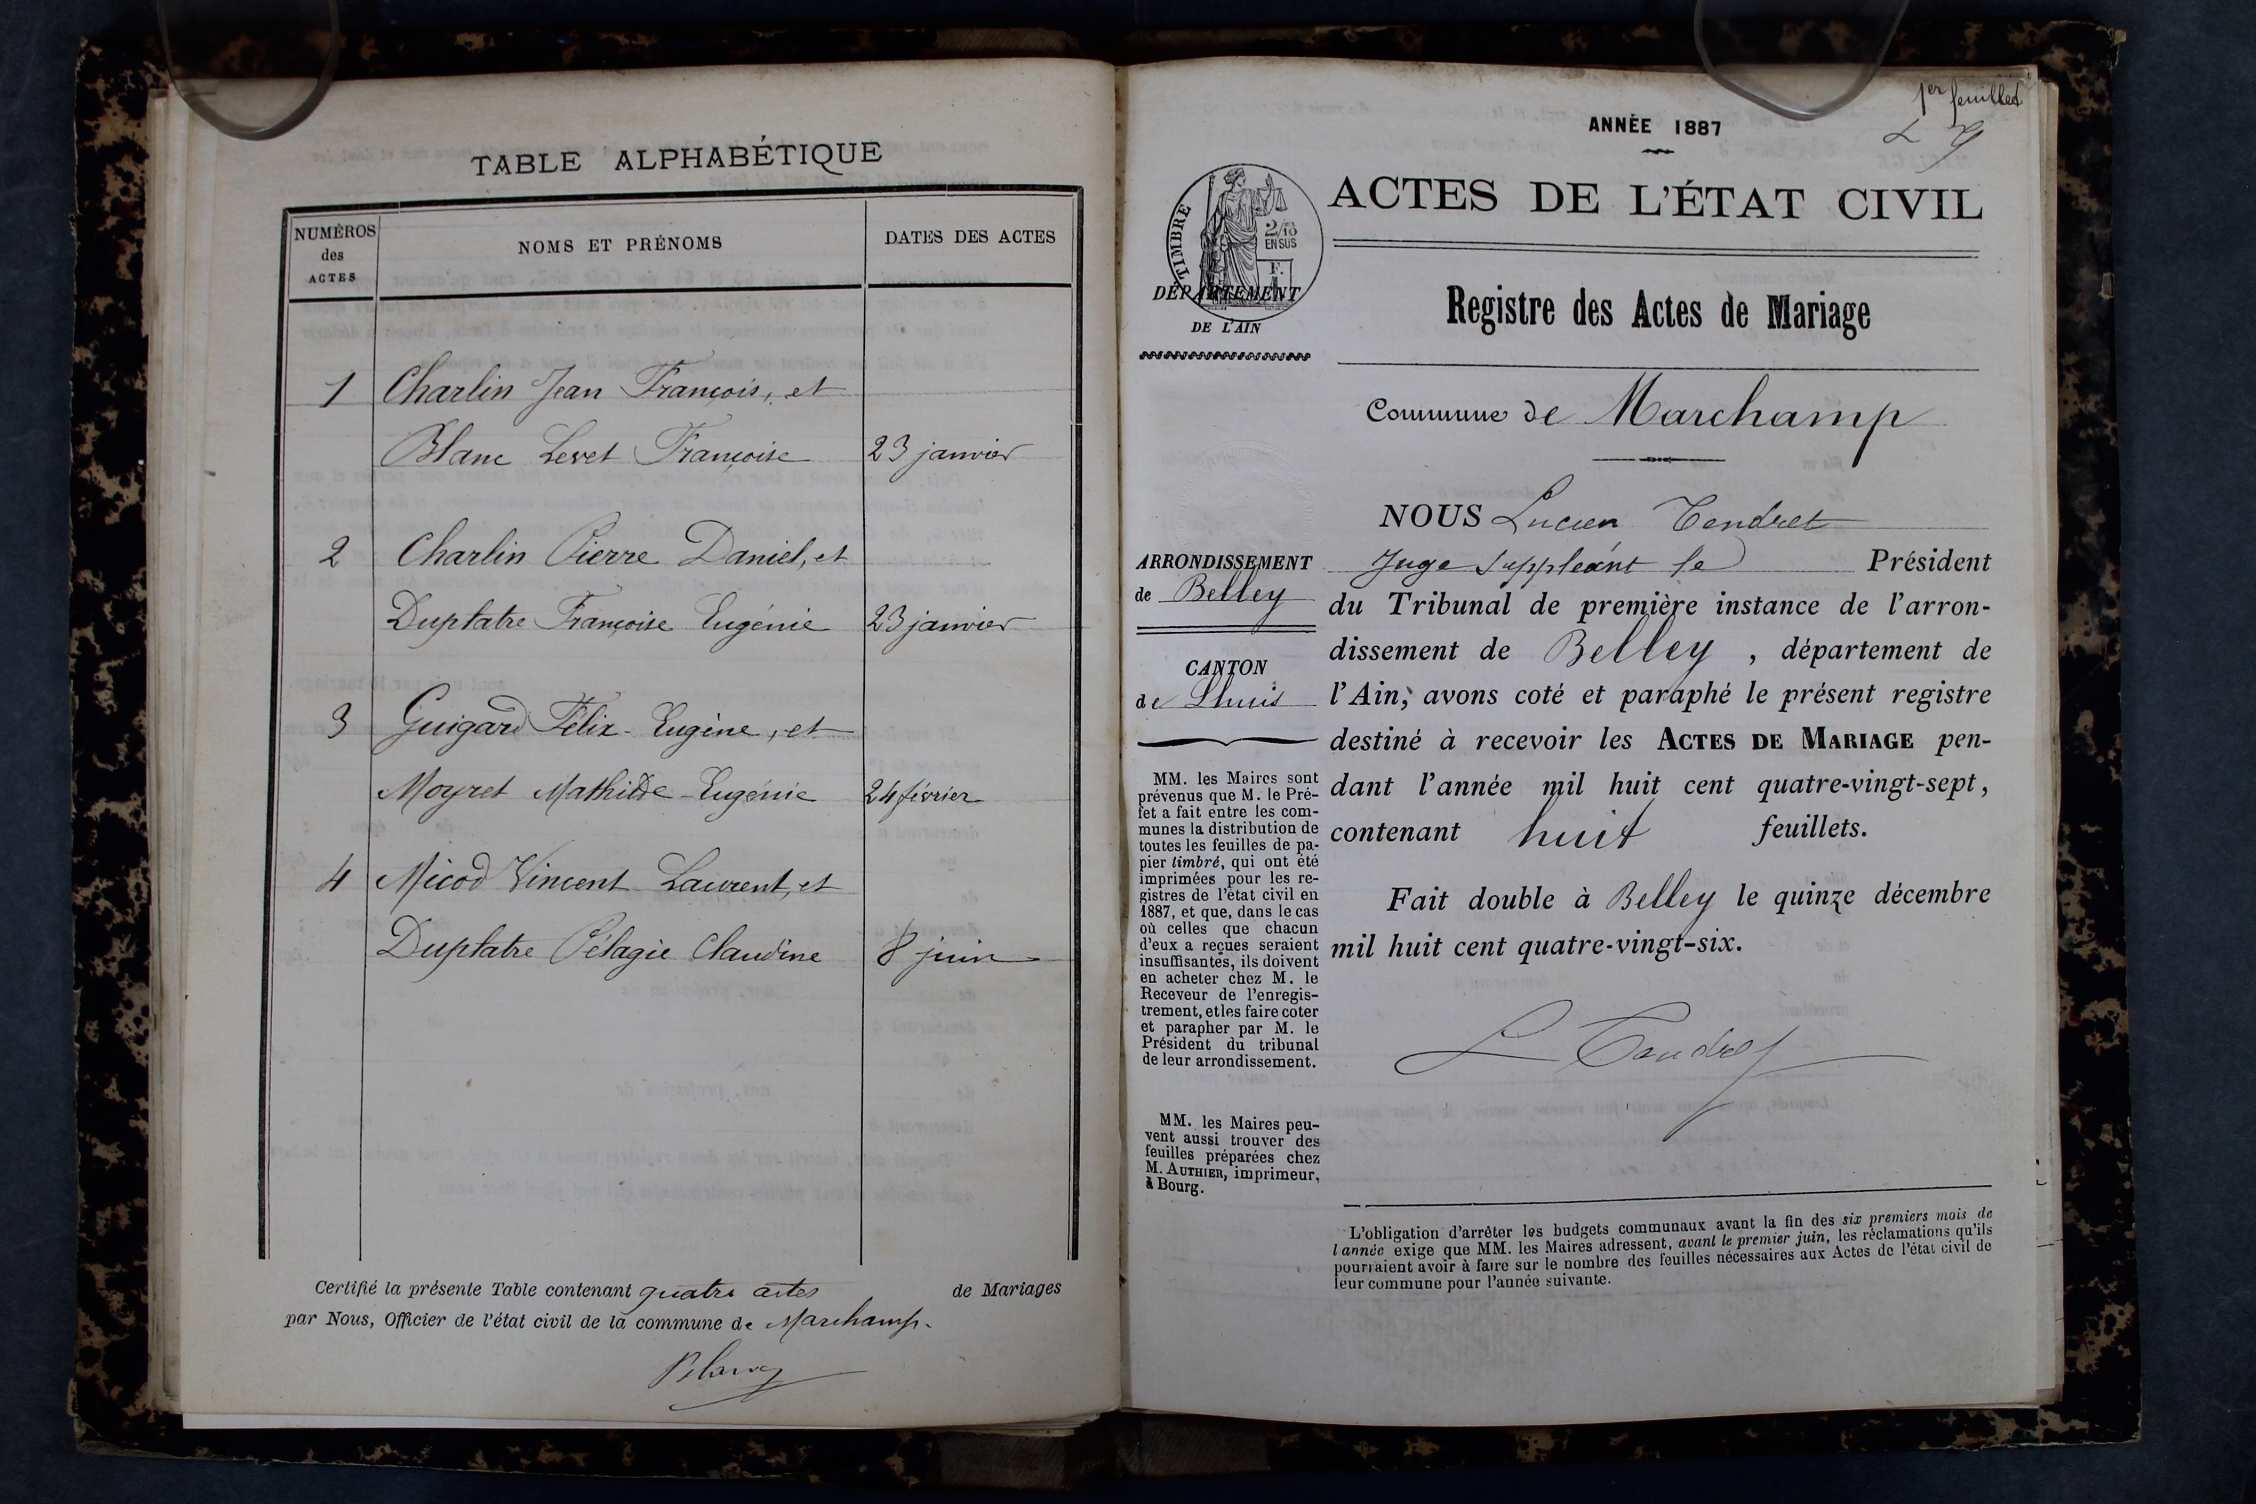 TABLE ALPHABÉTIQUE
NUMÉROS
des
ACTES
NOMS ET PRÉNOMS
DATES DES ACTES
1 Charlin Jean François, et
Blanc Levet Françoise 23 janvier
2 Charlin Pierre Daniel, et
Duplatre Françoise Eugénie 23 janvier
3 Guigard Félix Eugène, et
Moyret Mathilde Eugénie 24 février
4 Micod Vincent Laurent, et
Duplatre Pélagie Claudine 8 juin
Certifié la présente Table contenant quatre actes de Mariages
par Nous, Officier de l'état civil de la commune de Marchamp.
1er feuillet
ANNÉE 1887
TIMBRE
2/10
EN SUS
DÉPARTEMENT
DE L'AIN
ACTES DE L'ÉTAT CIVIL
Registre des Actes de Mariage
Commune de Marchamp
ARRONDISSEMENT
de Belley
CANTON
de Lhuis
MM. les Maires sont
prévenus que M. le Pré-
fet a fait entre les com-
munes la distribution de
toutes les feuilles de pa-
pier timbré, qui ont été
imprimées pour les re-
gistres de l'état civil en
1887, et que, dans le cas
où celles que chacun
d'eux a reçues seraient
insuffisantes, ils doivent
en acheter chez M. le
Receveur de l'enregis-
trement, et les faire coter
et parapher par M. le
Président du tribunal
de leur arrondissement.
MM. les Maires peu-
vent aussi trouver des
feuilles préparées chez
M. AUTHIER, imprimeur,
à Bourg.
NOUS Lucien Tendret
Juge suppléant le Président
du Tribunal de première instance de l'arron-
dissement de Belley, département de
l'Ain, avons coté et paraphé le présent registre
destiné à recevoir les ACTES DE MARIAGE pen-
dant l'année mil huit cent quatre-vingt-sept,
contenant huit feuillets.
Fait double à Belley le quinze décembre
mil huit cent quatre-vingt-six.
L Tendret
L'obligation d'arrêter les budgets communaux avant la fin des six premiers mois de
l'année exige que MM. les Maires adressent, avant le premier juin, les réclamations qu'ils
pourraient avoir à faire sur le nombre des feuilles nécessaires aux Actes de l'état civil de
leur commune pour l'année suivante.